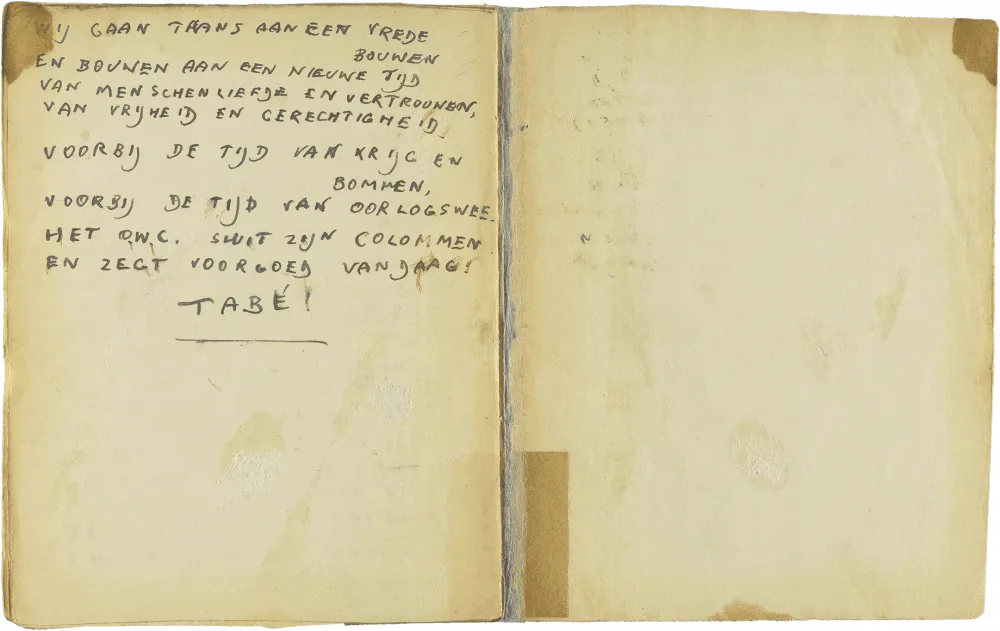 WIJ GAAN THANS AAN EEN VREDE
BOUWEN
EN BOUWEN AAN EEN NIEUWE TIJD
VAN MENSCHENLIEFDE EN VERTROUWEN,
VAN VRIJHEID EN GERECHTIGHEID.
VOORBIJ DE TIJD VAN KRIJG EN
BOMMEN,
VOORBIJ DE TIJD VAN OORLOGSWEE.
HET O.W.C. SLUIT ZIJN COLOMMEN
EN ZEGT VOORGOED VANDAAG:
TABÉ!
N